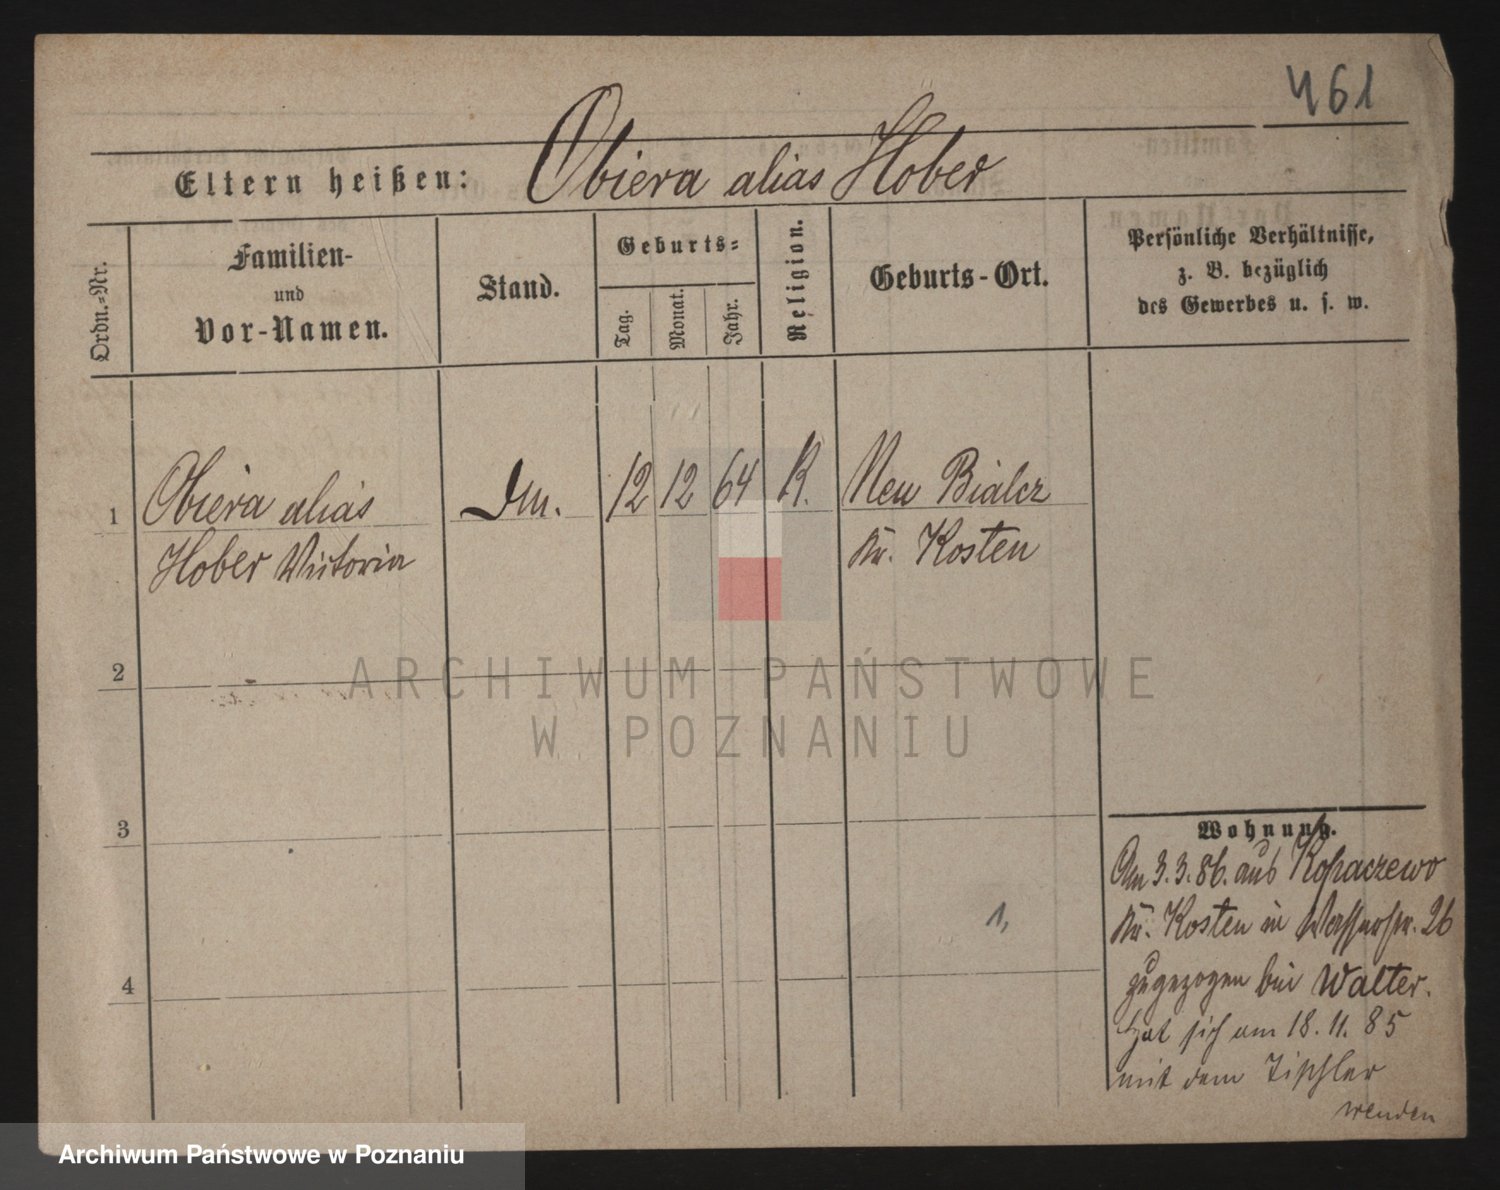 461
Eltern heißen: Obiera alias Hober
Ordn.=Nr.
Familien-
und
Vor-Namen.
Stand.
Geburts=
Tag.
Monat.
Jahr.
Religion.
Geburts-Ort.
Persönliche Verhältnisse,
z. B. bezüglich
des Gewerbes u. s. w.
1 Obiera alias 12 12 64 K. Neu Bialcz
Hober Victoria Kr. Kosten
2
ARCHIWUM PAŃSTWOWE
W POZNANIU
3
Wohnung.
Am 3.3.86. aus Kopaczewo
1, Kr. Kosten in Wasserstr. 26
4 zugezogen bei Walter.
Hat sich am 18.11.85
mit dem Tischler
wenden
Archiwum Państwowe w Poznaniu